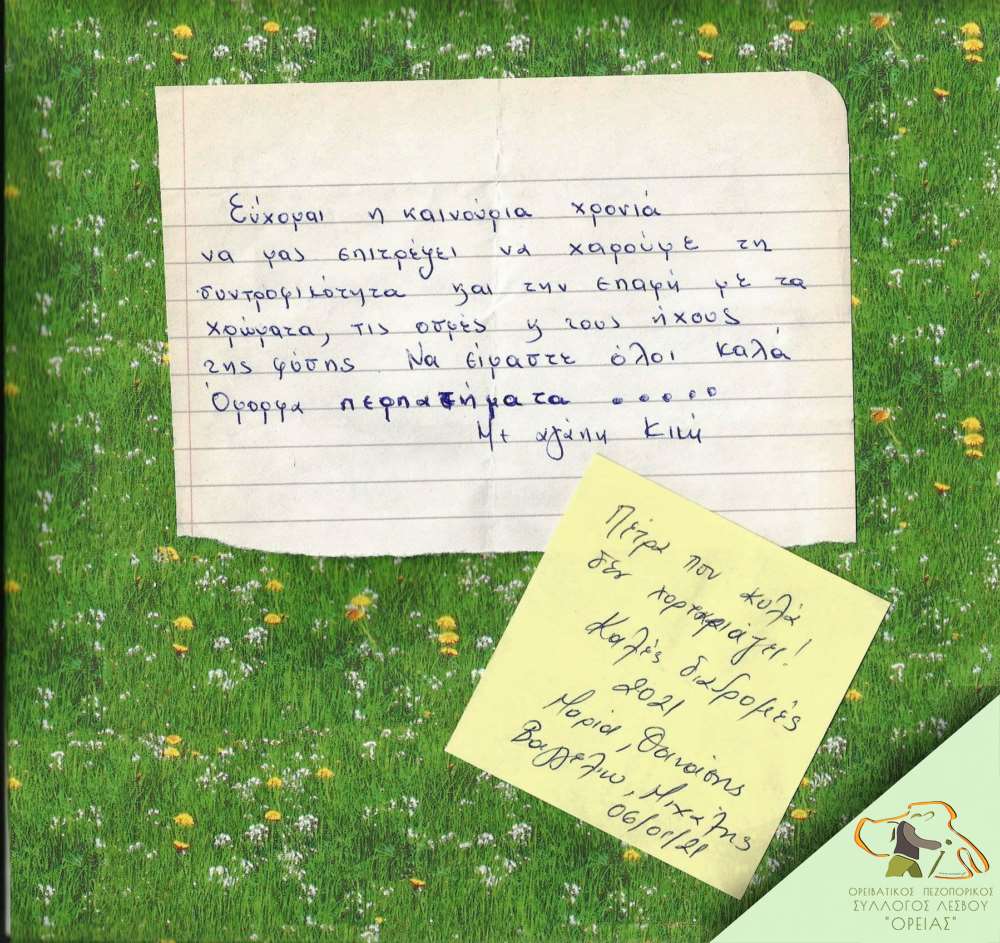 Εύχομαι η καινούρια χρονιά
να μας επιτρέψει να χαρούμε τη
συντροφικότητα και την επαφή με τα
χρώματα, τις οσμές κ τους ήχους
της φύσης. Να είμαστε όλοι καλά
Όμορφα περπατήματα .....
Με αγάπη Κική
Πέτρα που κυλά
δεν χορταριάζει!
Καλές διαδρομές
2021
Μαρία, Θανάσης
Βαγγελιώ, Μιχάλης
06/01/21
ΟΡΕΙΒΑΤΙΚΟΣ ΠΕΖΟΠΟΡΙΚΟΣ
ΣΥΛΛΟΓΟΣ ΛΕΣΒΟΥ
"ΟΡΕΙΑΣ"